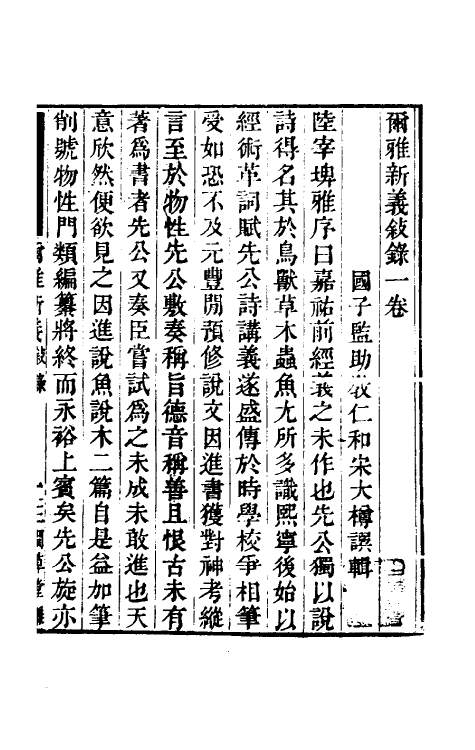 爾雅新義敍錄一卷
國子監助敎仁和宋大樽譔輯
陸宰埤雅序曰嘉祐前經義之未作也先公獨以說
詩得名其於鳥獸草木蟲魚尢所多識熙寧後始以
經術革詞賦先公詩講義遂盛傳於時學校爭相筆
受如恐不及元豐閒預修說文因進書獲對神考縱
言至於物性先公敷奏稱旨德音稱善且恨古未有
著爲書者先公又奏臣嘗試爲之未成未敢進也天
意欣然便欲見之因進說魚說木二篇自是益加筆
削號物性門類編纂將終而永裕上賓矣先公旋亦
爾雅新義敍錄